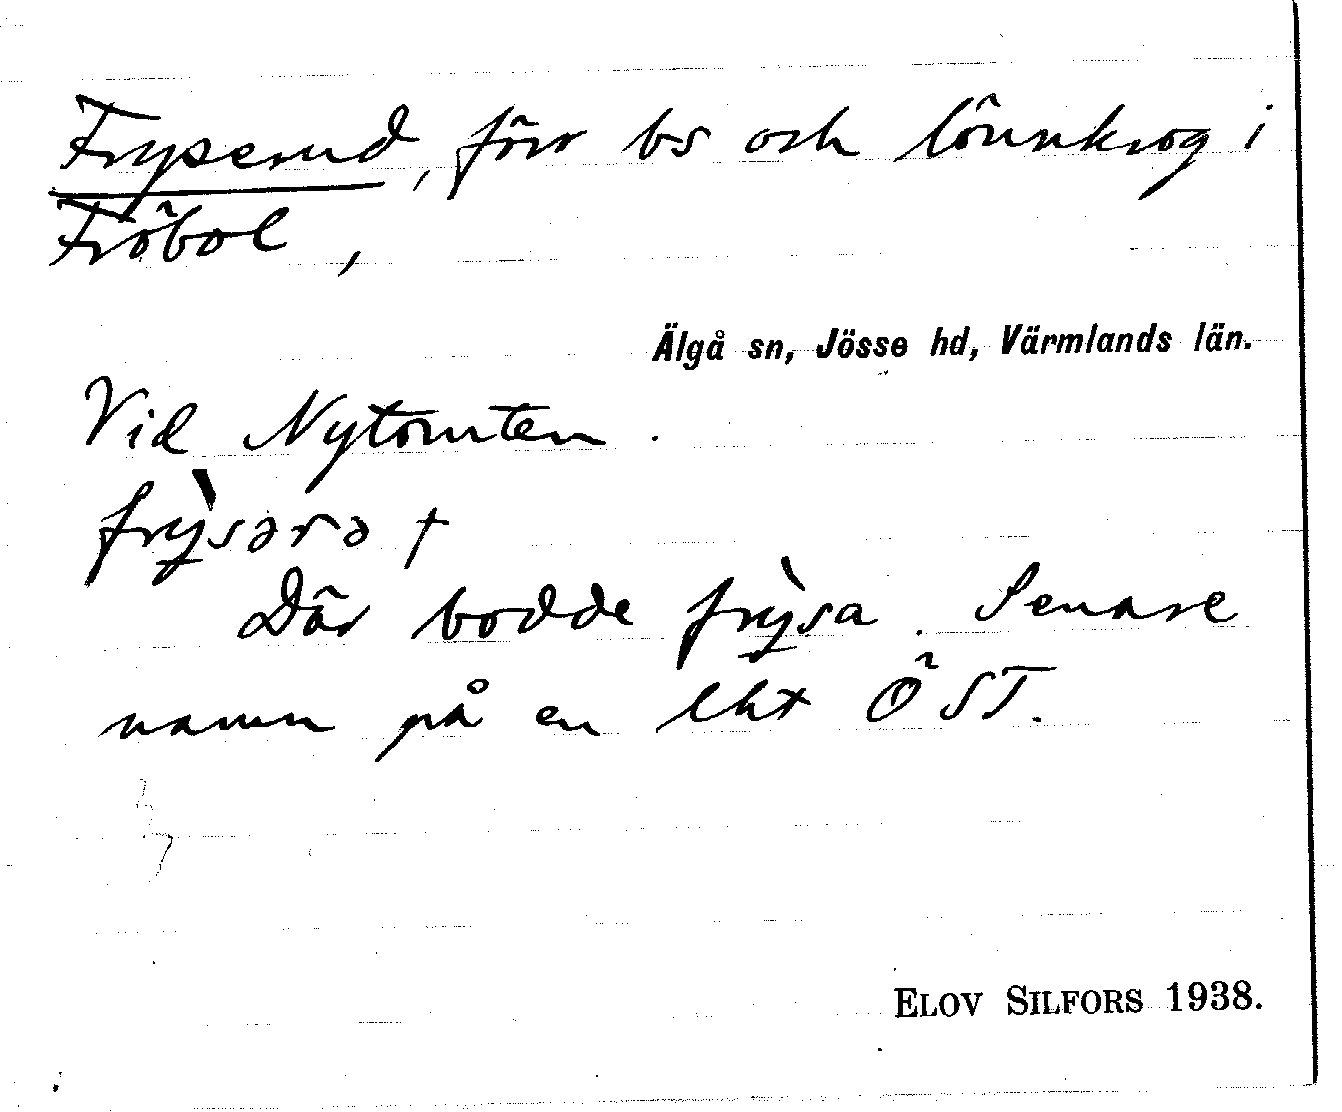 Fryserud, förr bs och lönnkrog i
Fröbol,
Älgå sn, Jösse hd, Värmlands län.
Vid Nytomten.
frỳsərə †
Där bodde frỳsa. Senare
namn på en lht ÖST.
ELOV SILFORS 1938.